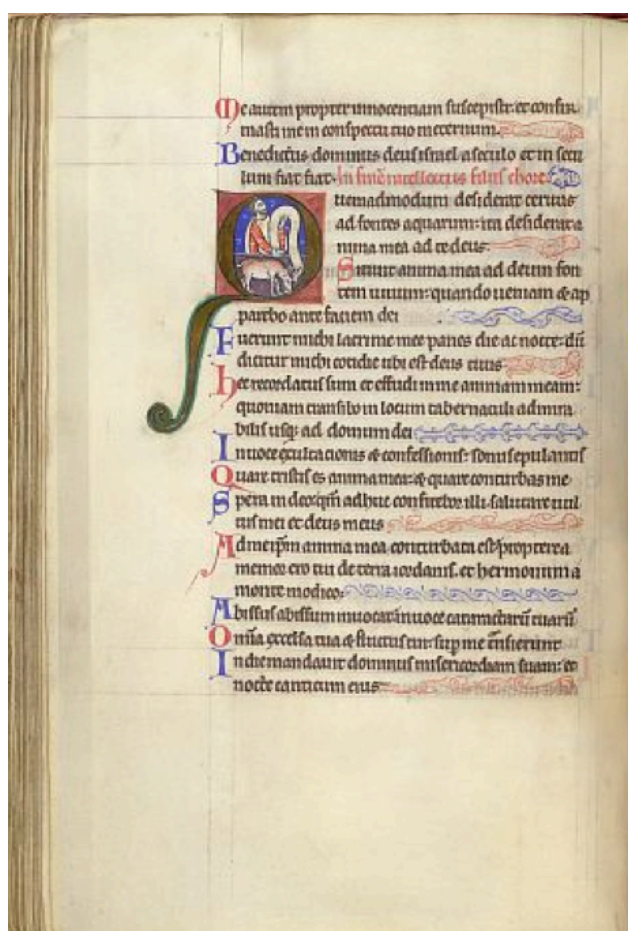 Me autem propter innocentiam suscepisti: et confir
masti me in conspectu tuo in eternum.
Benedictus dominus deus israel a seculo et in secu
lum fiat fiat. In finē intellectus filiis chore.
Quemadmodum desiderat ceruus
ad fontes aquarum: ita desiderat a
nima mea ad te deus.
Sitiuit anima mea ad deum fon
tem uiuum: quando ueniam & ap
parebo ante faciem dei
Fuerunt michi lacrime mee panes die ac nocte: dū
dicitur michi cotidie ubi est deus tuus
Hec recordatus sum et effudi in me animam meam:
quoniam transibo in locum tabernaculi admira
bilis usq; ad domum dei
In uoce exultacionis & confessionis: sonus epulantis
Quare tristis es anima mea: & quare conturbas me
Spera in deo qm̄ adhuc confitebor illi: salutare uul
tus mei et deus meus
Ad me ip̄m anima mea conturbata est: propterea
memor ero tui de terra iordanis. et hermoniim a
monte modico.
Abissus abissum inuocat: in uoce cataractarū tuarū
Om̄ia excelsa tua & fluctus tui: sup me t̄nsierunt
In die mandauit dominus misericordiam suam: et
nocte canticum eius